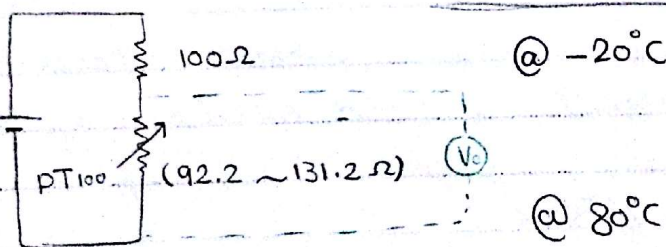 100Ω
@ -20°C
Vo
PT100 (92.2 ~ 131.2 Ω)
@ 80°C